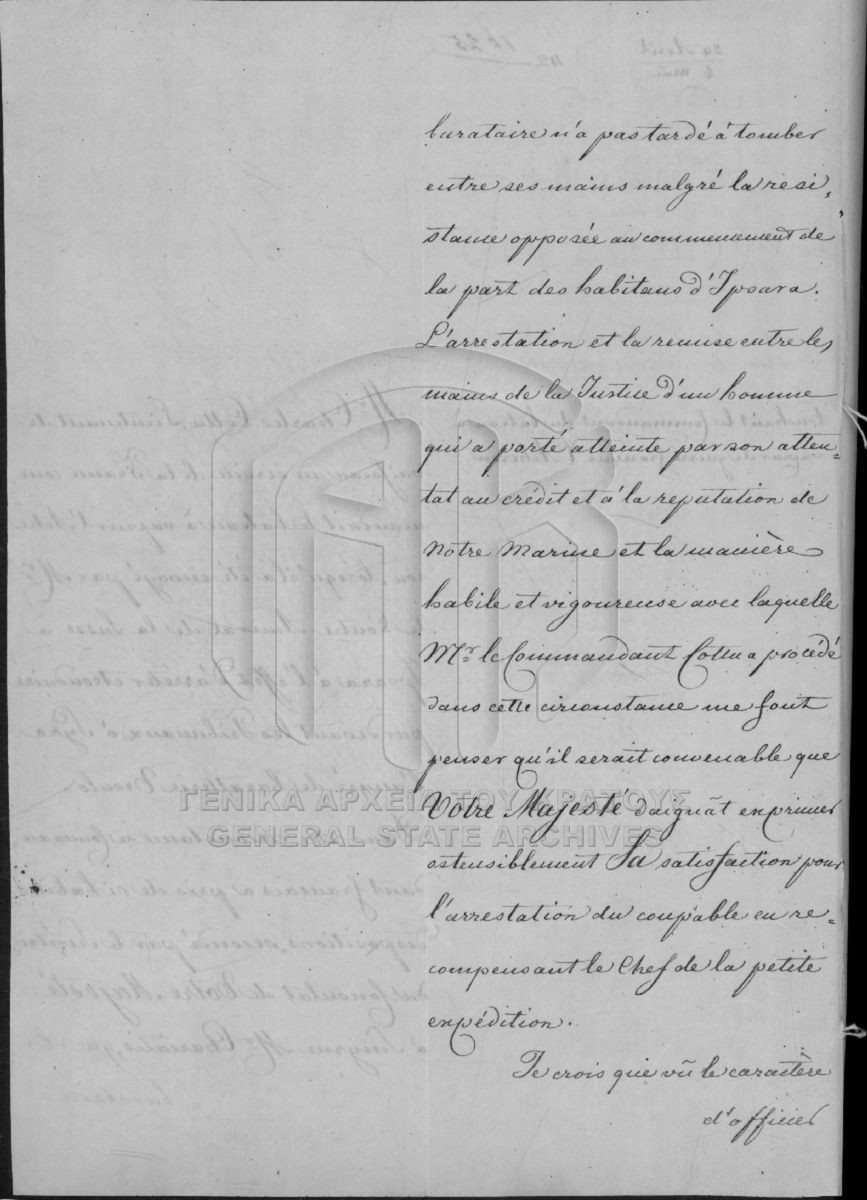 barataire n'a pas tardé à tomber
entre ses mains malgré la resi-
stance opposée au commencement de
la part des habitans d'Ipsara.
L'arrestation et la remise entre les
mains de la Justice d'un homme
qui a porté atteinte par son atten-
tat au crédit et à la reputation de
Notre Marine et la manière
habile et vigoureuse avec laquelle
Mr. le Commandant Cottu a procédé
dans cette circonstance me font
penser qu'il serait convenable que
Votre Majesté daignât exprimer
ostensiblement Sa satisfaction pour
l'arrestation du coupable en re-
compensant le Chef de la petite
expédition.
Je crois que vû le caractère
d'officier
ΓΕΝΙΚΑ ΑΡΧΕΙΑ ΤΟΥ ΚΡΑΤΟΥΣ
GENERAL STATE ARCHIVES